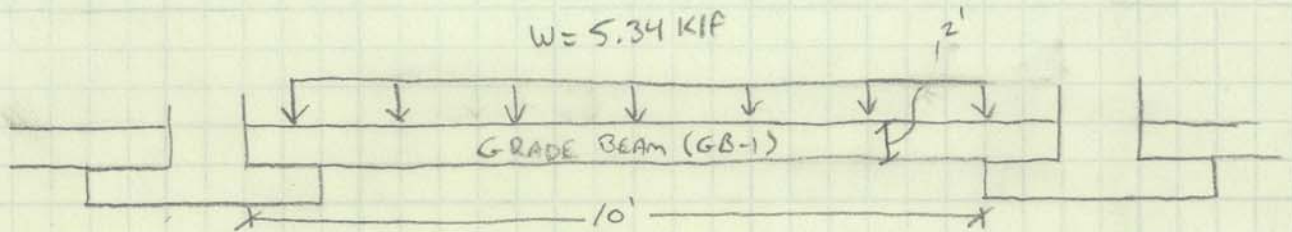 W= 5.34 Klf
2'
GRADE BEAM (GB-1)
10'